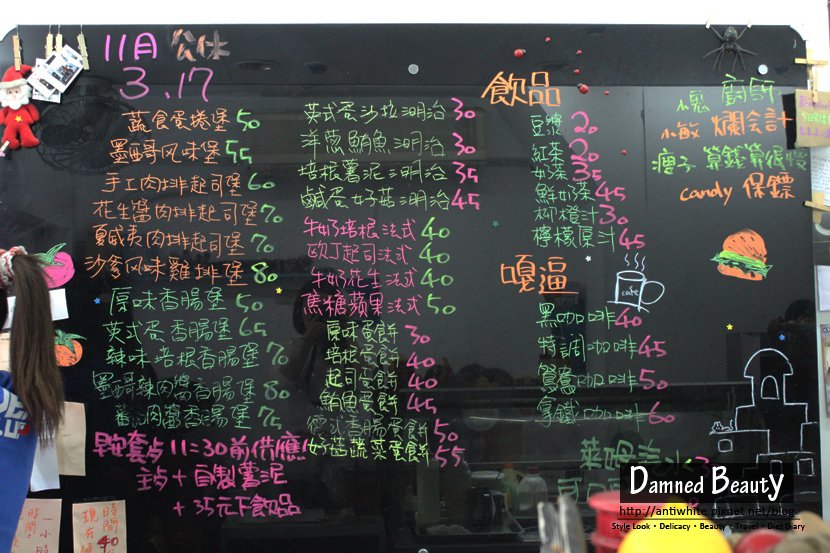 11月 公休
3.17
蔬食蛋捲堡 50
墨西哥风味堡 55
手工肉排起司堡 60
花生醬肉排起司堡 70
夏威夷肉排起司堡 70
沙爹风味雞排堡 80
原味香腸堡 50
英式蛋香腸堡 65
辣味培根香腸堡 70
墨西哥辣肉醬香腸堡 80
蕃茄肉醬香腸堡 75
早安套点 11:30前供應!
主点 + 自製薯泥
+ 35元下飲品
英式蛋沙拉三明治 30
洋蔥鮪魚三明治 30
培根薯泥三明治 35
鹹蛋好菇三明治 45
牛奶培根法式 40
歐丁起司法式 40
牛奶花生法式 40
蕉糖蘋果法式 50
原味蛋餅 30
培根蛋餅 40
起司蛋餅 40
鮪魚蛋餅 45
德式香腸蛋餅 50
好菇蔬菜蛋餅 55
飲品
豆漿 20
紅茶 20
奶茶 35
鮮奶茶 45
柳橙汁 30
檸檬原汁 45
嘎逼
cafe
黑咖啡 40
特調咖啡 45
鴛鴦咖啡 50
拿鐵咖啡 60
萊姆汽水 3
可口
廚房
小敏 爛会計
瘦子 算錢算很慢
candy 保鏢
時間
一小時
時間
現在
40
Damned Beauty
http://antiwhite.pixnet.net/blog
Style Look • Delicacy • Beauty • Travel • Diet Diary